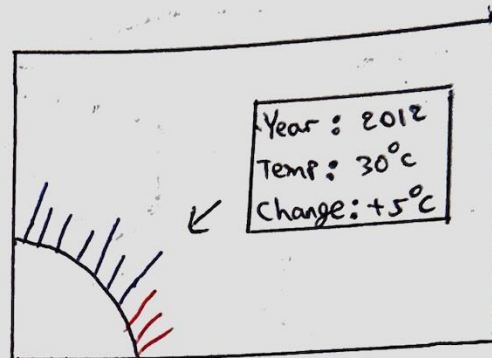 Year : 2012
Temp : 30°c
Change : +5°C